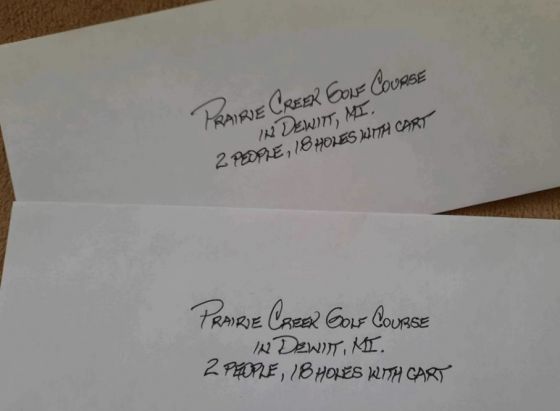 Prairie Creek Golf Course
in Dewitt, MI.
2 people, 18 holes with cart
Prairie Creek Golf Course
in Dewitt, MI.
2 people, 18 holes with cart